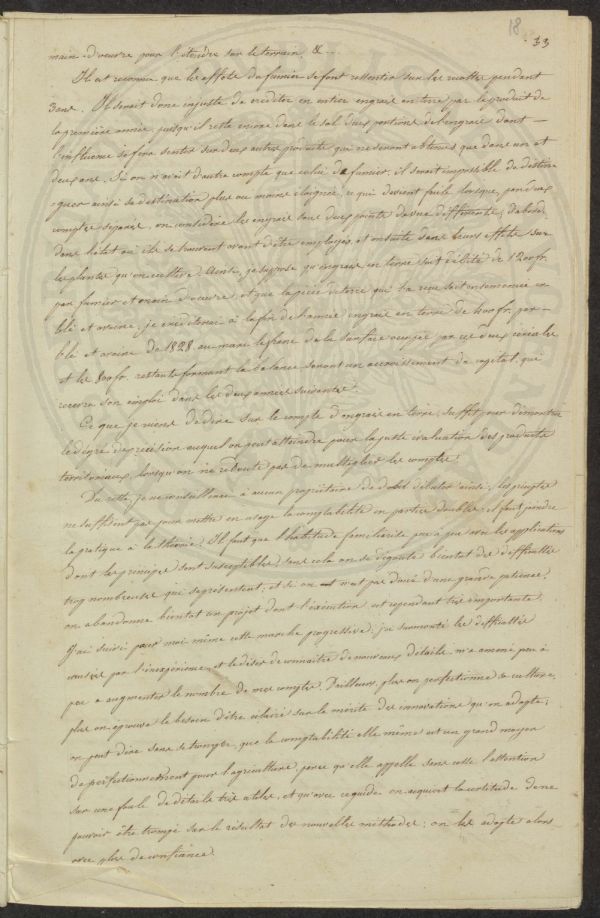 18
33
main-d'oeuvre pour l'étendre sur le terrain, &...
Il est reconnu que les effets du fumier se font ressentir sur les récoltes pendant
3 ans. Il serait donc injuste de créditer en entier engrais en terre par le produit de
la première année, puisqu'il reste encore dans le sol des portions de l'engrais dont
l'influence se fera sentir sur deux autres produits qui ne seront obtenus que dans un et
deux ans. Si on n'avait d'autre compte que celui de fumier, il serait impossible de
ainsi sa destination plus ou moins éloignée, ce qui devient facile lorsque, par deux
comptes séparés, on considère les engrais sous deux points de vue différents; d'abord
dans l'état où ils se trouvent avant d'être employés, et ensuite dans leurs effets sur
les plantes qu'on cultive. Ainsi, je suppose qu'engrais en terre soit débité de 1200 fr.
par fumier et main d'oeuvre, et que la pièce de terre qui l'a reçu soit ensemencée en
blé et avoine, je créditerai à la fin de l'année engrais en terre de 400 fr. par
blé et avoine de 1828 au marc le franc de la surface occupée par ces deux céréales
et les 800 fr. restants formant la balance seront un accroissement de capital qui
recevra son emploi dans les deux années suivantes.
Ce que je viens de dire sur le compte d'engrais en terre, suffit pour démontrer
le degré de précision auquel on peut atteindre pour la juste évaluation des produits
territoriaux, lorsqu'on ne rebute pas de multiplier les comptes.
Du reste, je ne conseillerai à aucun propriétaire de débuter ainsi; les principes
ne suffisent pas pour mettre en usage la comptabilité en partie double; il faut joindre
la pratique à la théorie. Il faut que l'habitude familiarise peu à peu avec les applications
dont les principes sont susceptibles, sans cela on se dégoûte bientôt des difficultés
trop nombreuses qui se présentent; et si on n'est pas doué d'une grande patience,
on abandonne bientôt un projet dont l'exécution est cependant très importante.
J'ai suivi pour moi même cette marche progressive; j'ai surmonté les difficultés
causées par l'inexpérience, et le désir de connaître de nouveaux détails m'a amené peu à
peu à augmenter le nombre de mes comptes. D'ailleurs, plus on perfectionne sa culture,
plus on éprouve le besoin d'être éclairé sur le mérite des innovations qu'on adopte;
on peut dire sans se tromper, que la comptabilité elle même est un grand moyen
de perfectionnement pour l'agriculture, parce qu'elle appelle sans cesse l'attention
sur une foule de détails très utiles, et qu'avec ce guide on acquiert la certitude de ne
pouvoir être trompé sur le résultat des nouvelles méthodes; on les adopte alors
avec plus de confiance.